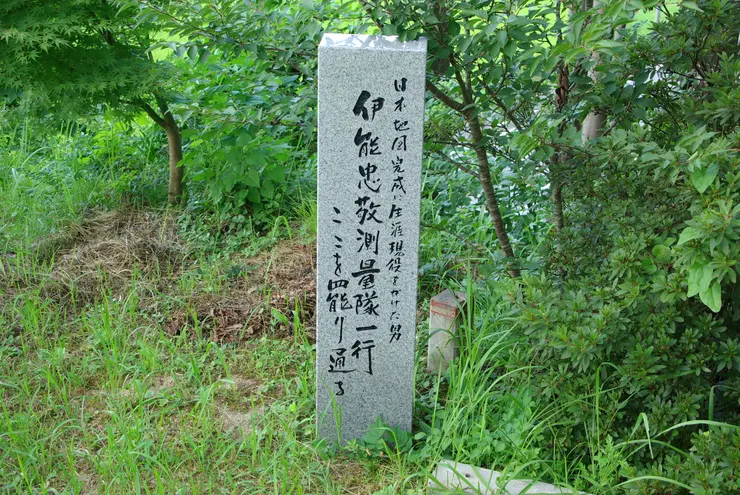 日本地図完成に生涯現役をかけた男
伊能忠敬測量隊一行
ここを罷り通る